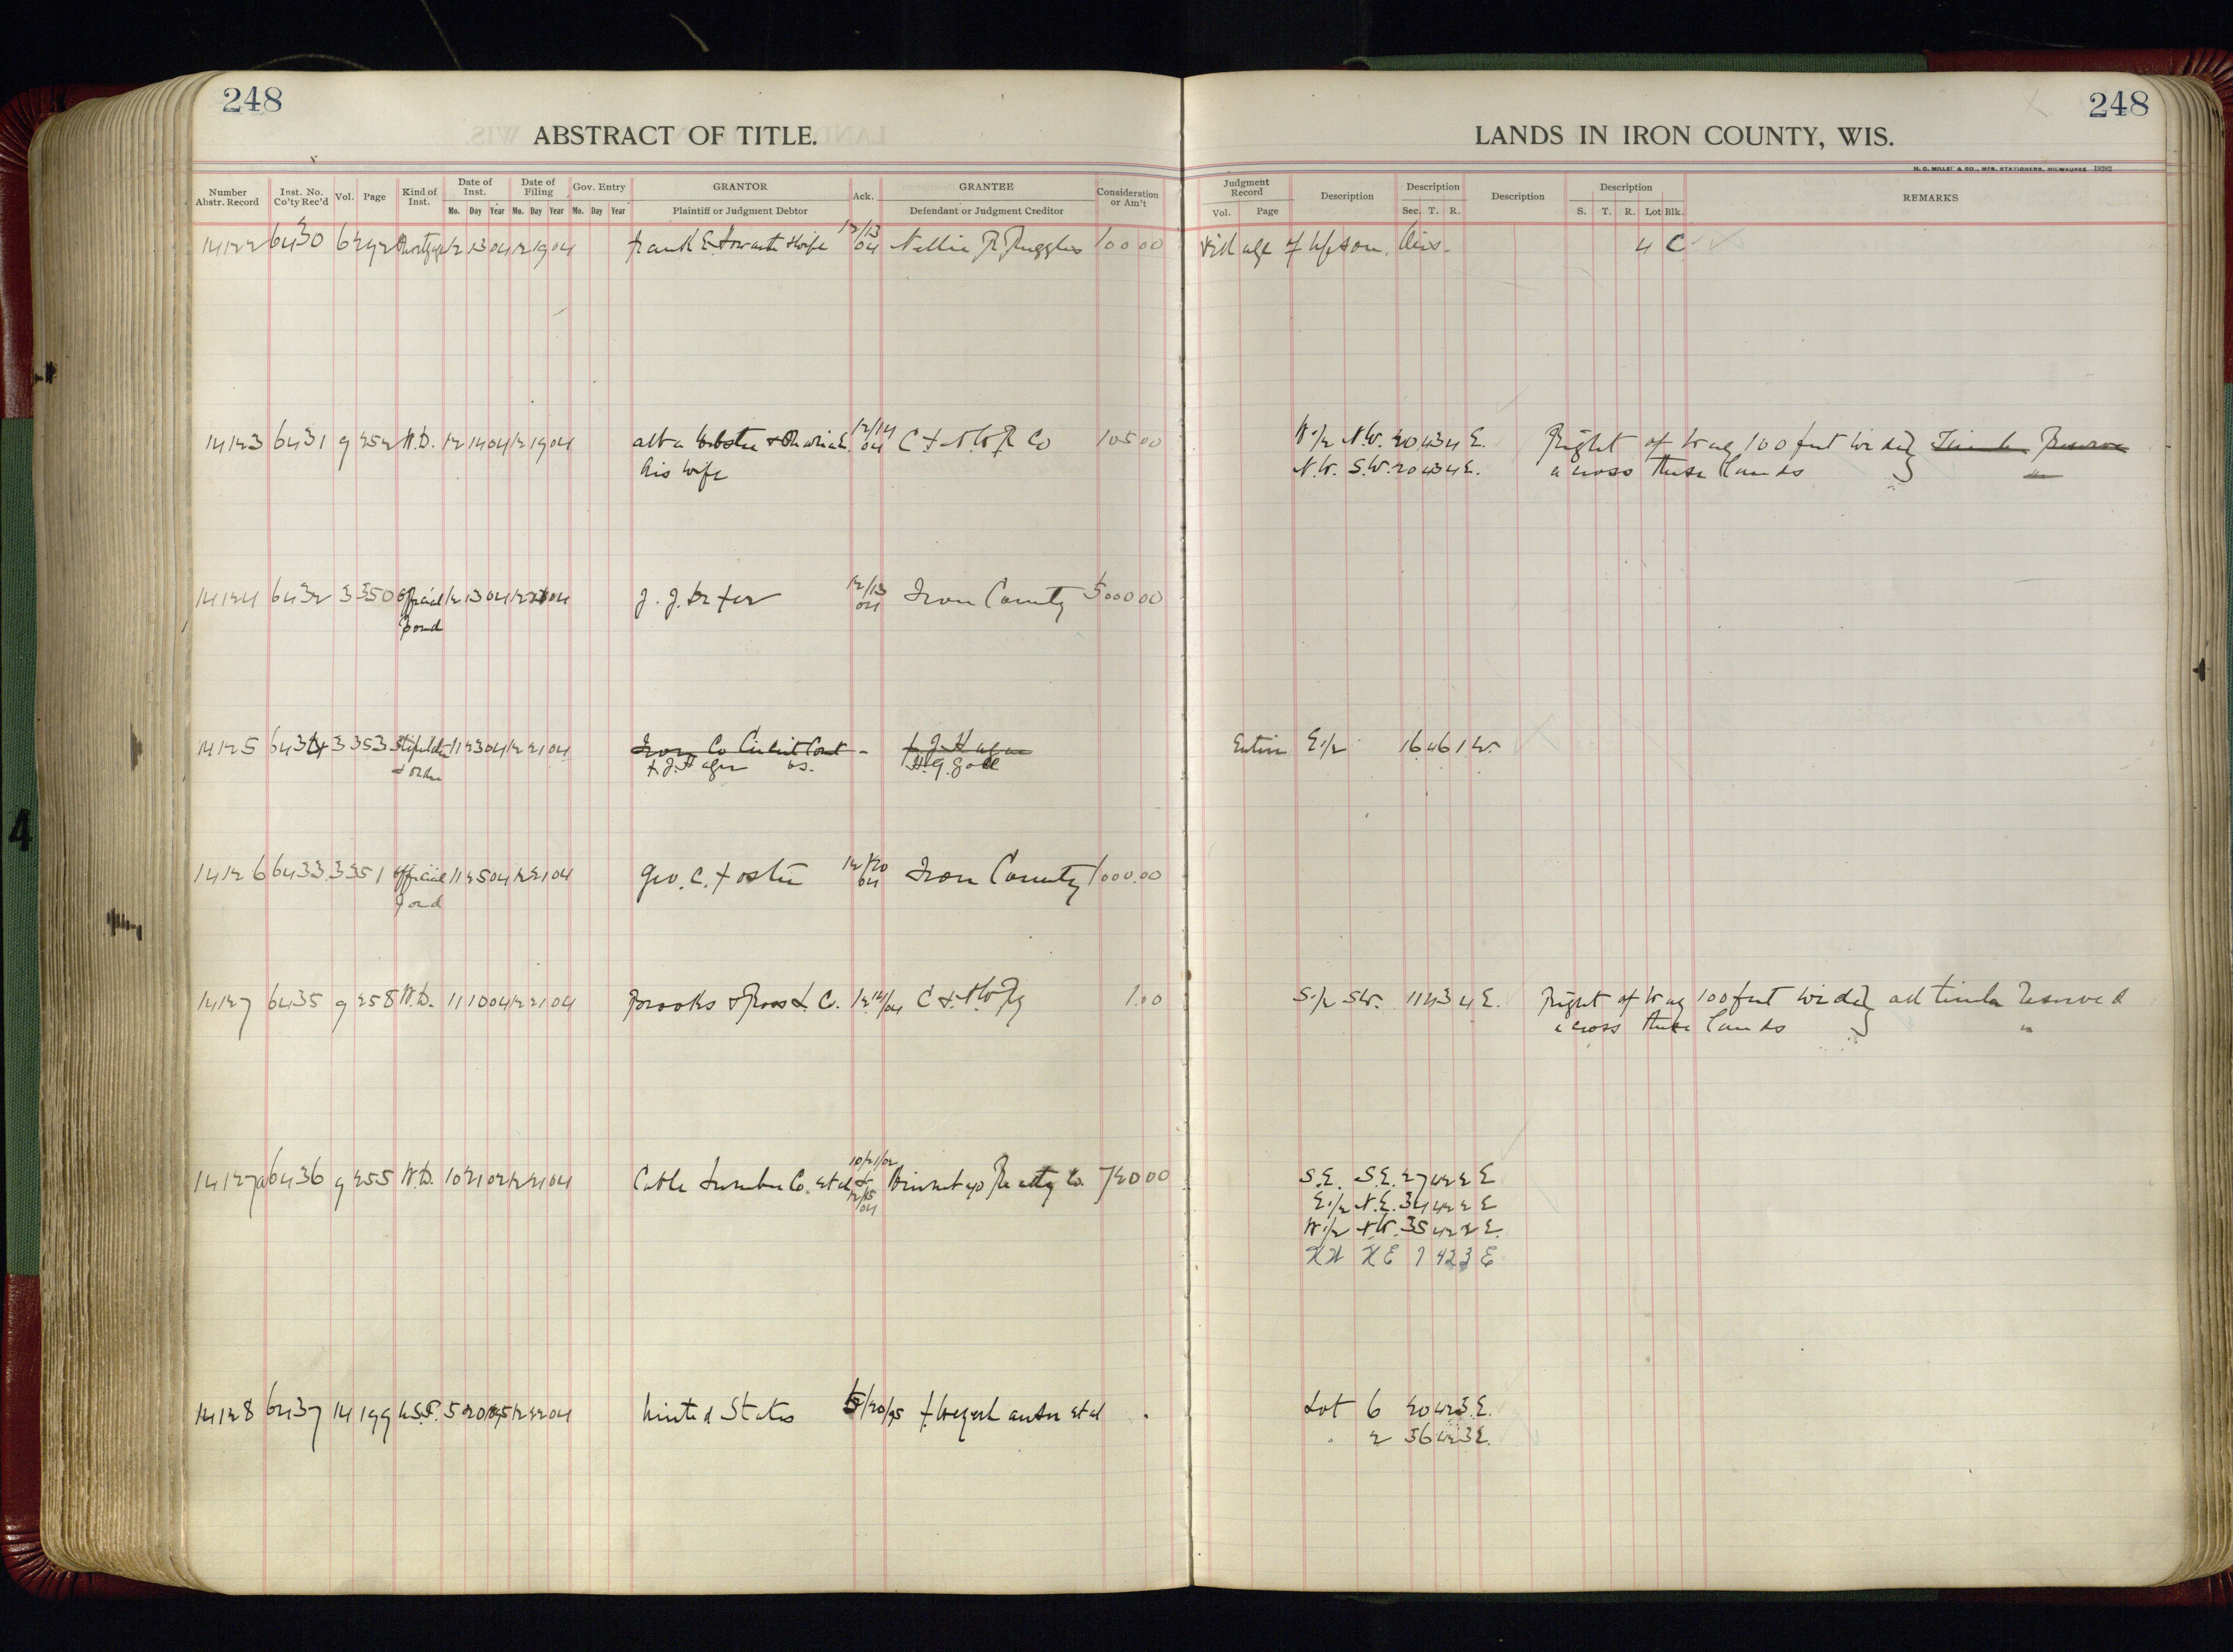 248
248
ABSTRACT OF TITLE.
LANDS IN IRON COUNTY, WIS.
H. C. MILLER CO., MFG. STATIONERS, MILWAUKEE 19282
Number Abstr. Record Inst. No. Co'ty Rec'd Vol. Page Kind of Inst. Date of Inst. Date of Filing Gov. Entry GRANTOR Ack. GRANTEE Consideration or Am't Judgment Record Description Description Description Description REMARKS
Mo. Day Year Mo. Day Year Mo. Day Year Plaintiff or Judgment Debtor Defendant or Judgment Creditor Vol. Page Sec. T. R. S. T. R. Lot Blk.
14122 6430 6 292 Mortgage 12 13 04 12 19 04 Frank E. & Wife 12/13 04 Nellie R. Ruggles 100 00 Village of Upson, Wis. 4 C
14123 6431 9 252 W.D. 12 14 04 12 19 04 Alba Webster & 12/14 04 C & N.W. R Co 105 00 W 1/2 N.W. 20 43 4 E. Right of Way 100 feet wide Timber Reserve
his wife N.W. S.W. 20 43 4 E. across these lands "
14124 6432 3 350 Official 12 13 04 12 04 J. J. 12/13 04 Iron County 5000 00
Bond
14125 643 3 353 11 23 04 12 21 04 Iron Co Circuit Court - F. J. Hager Entire E 1/2 16 46 1 W.
& Order F. J. Hager vs. H. G.
14126 6433 3 351 Official 11 25 04 12 21 04 Geo. C. Foster 12/20 04 Iron County 1000.00
Bond
14127 6435 9 258 W.D. 11 10 04 12 21 04 Brooks & Ross L. Co. 12 14/04 C & N.W. Ry 1.00 S 1/2 SW. 11 43 4 E. Right of Way 100 feet wide all timber reserved
across these lands "
14127a 6436 9 255 W.D. 10 21 02 12 21 04 Cable Lumber Co. et al 10/21/02 & 12/15 04 Realty Co. 720 00 S.E. S.E. 27 42 2 E
E 1/2 N.E. 34 42 2 E
W 1/2 N.W. 35 42 2 E.
NW NE 7 42 3 E
14128 6437 14 199 U.S.P. 5 20 95 12 22 04 United States 5/20/95 F. Weyerhauser et al Lot 6 20 42 3 E.
" 2 36 42 3 E.